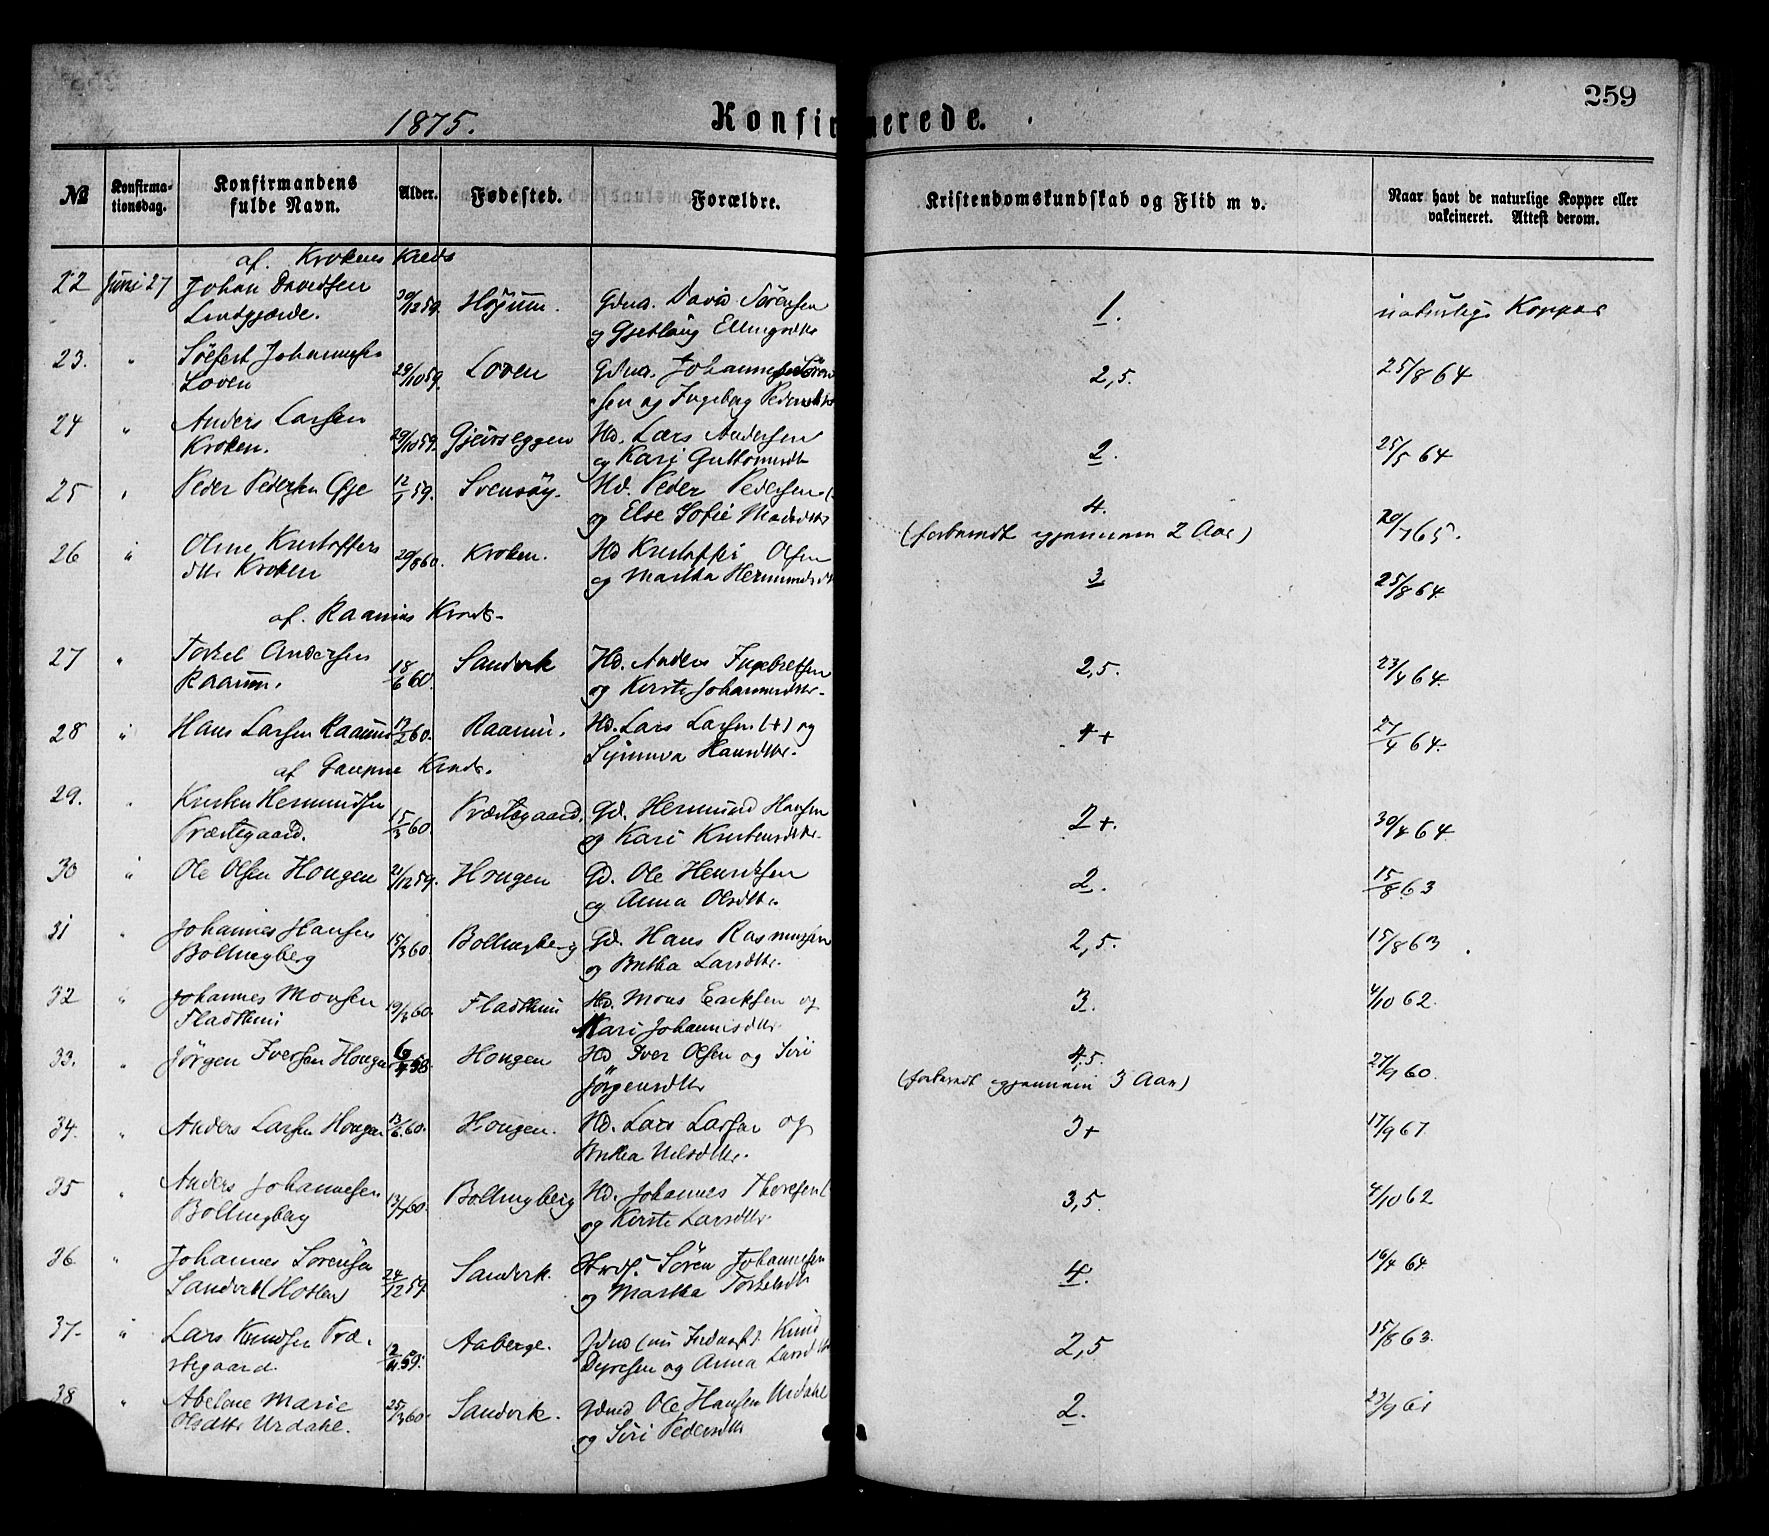 259
1875. Konfirmerede.
№ Konfirmationsdag. Konfirmandens fulde Navn. Alder. Fødested. Forældre. Kristendomskundskab og Flid m v. Naar havt de naturlige Kopper eller vakcineret. Attest derom.
af. Krokens Kreds
22 Juni 27 Johan Davidsen 30/12 59. Høgum. Gdm. David Sørensen 1. naturlige Kopper
Lindgjærde. og Gjetlaug Ellingsdtr
23. " Johannesen 29/10 59. Loven Gdm. Johannes Søren 2,5. 25/8 64
Loven sen og Ingeborg Pedersdtr
24 " Anders Larsen 29/10 59. Hd. Lars Andersen 2. 25/5 64
Kroken. og Kari Guttormsdtr
25 " Peder Pedersen Øje 59. Svensøy. Hd. Peder Pedersen 4. 20/7 65.
og Else Sofie Madsdtr (forbaundt igjennem 2 Aar)
26 " Oline Kristoffers 29/8 60. Kroken. Hd Kristoffer Olsen 3 25/8 64.
dtr Kroken og Martha Hermundsdtr
af. Raaums Kreds.
27 " Torkel Andersen 18/6 60. Sandvik Hd. Anders Ingebretsen 2,5. 23/4 64.
Raaum. og Kirsti Johannesdtr.
28 " Hans Larsen Raaum 60. Raaum. Hd. Lars Larsen (+) og 4+ 21/4 64.
Synneva Hansdtr.
af Gaupne Kreds.
29. " Kristen Hermundsen 15/3 60 Præstegaard. Gd. Hermund Hansen 2+. 30/4 64
Præstegaard. og Kari Kristensdtr.
30 " Ole Olsen Hougen 21/12 59. Hougen Gd. Ole Henriksen 2. 15/8 63
og Anna Olsdtr.
31 " Johannes Hansen 15/3 60. Bollingberg Gd. Hans Rasmussen 2,5. 15/8 63
Bollingberg og Britha Larsdtr.
32 " Johannes Monsen 60. Fladheim Hd. Mons Eriksen og 3. 4/10 62.
Fladheim Kari Johannisdtr.
33. " Jørgen Iversen Hougen 58. Hougen Hd Iver Olsen og Siri 4,5. 27/9 60.
Jørgensdtr (forbaundt igjennem 3 Aar)
34. " Anders Larsen Hougen 13/6 60. Hougen. Hd. Lars Larsen og 3+ 17/9 67.
Britha Nilsdtr.
35 " Anders Johannesen 60. Bollingberg Hd. Johannes Thoresen 3,5. 4/10 62
Bollingberg og Kirsti Larsdtr.
36 " Johannes Sørensen 24/12 59 Sandvik. Søren Johannesen 4. 16/4 64.
Sandvik og Martha Torkelsdtr
37. " Lars Knudsen Præ- 59. Aaberge. Knud 2,5 15/8 63.
stegaard. og Anna Larsdtr
38 " Abelone Marie 25/3 60. Sandvik. Gdmd Ole Hansen Urdahl 2. 23/9 61
Olsdtr Urdahl. og Siri Pedersdtr